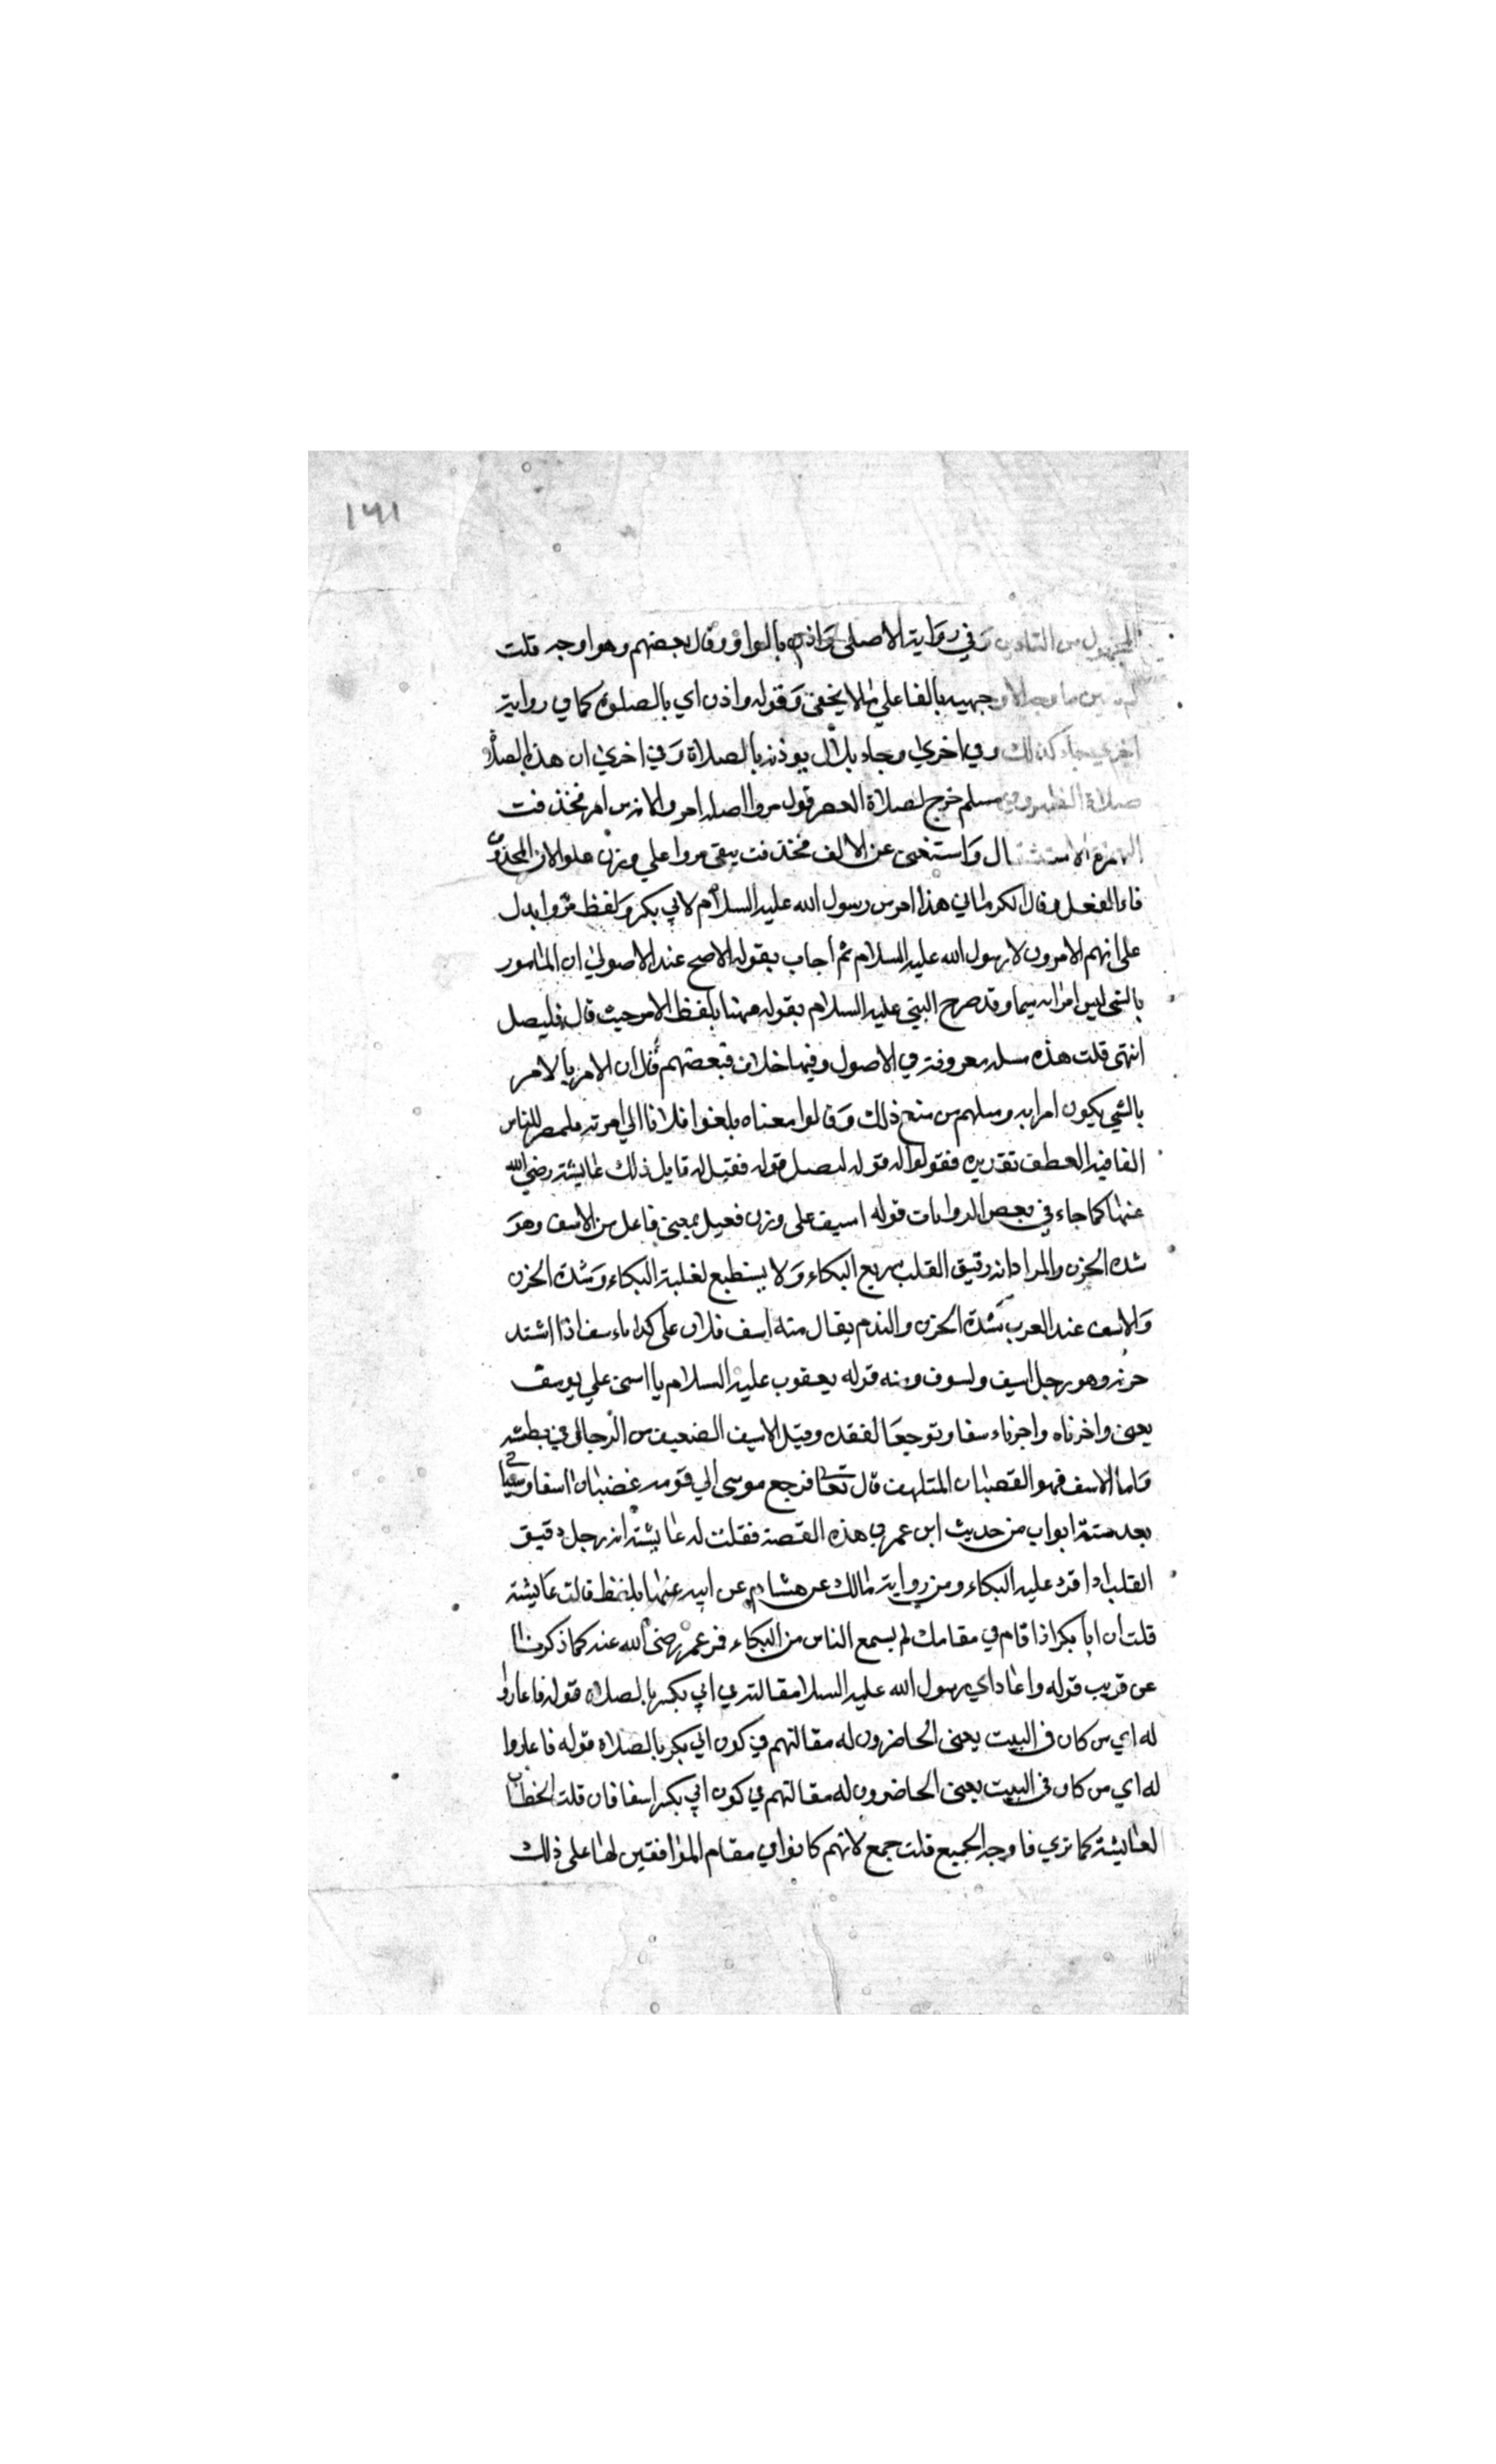 ١٦١
المجهول من التاذين وفي رواية الاصلي واذن بالواو وقال بعضهم وهو اوجه قلت
لم يبين ما وجه الاوجهيه بالفا علي مالا يخفى وقوله واذن اي بالصلوة كما في رواية
اخري جاء كذلك وفي اخري وجاء بلال يوذنه بالصلاة وفي اخري ان هذه الصلاة
صلاة الظهر وفي مسلم خرج لصلاة العصر قوله مروا اصله امر والانه من امر فحذفت
الهمزة الاستثقال واستغنى عن الالف فحذفت يبقى مروا علي وزن علوا لان المحذوف
فاء الفعل وقال الكرماني هذا امر من رسول الله عليه السلام لابي بكر ولفظ مروا يدل
على انهم الامرون لا رسول الله عليه السلام ثم اجاب بقوله الاصح عند الاصولي ان المامور
بالشي ليس امرا به سيما وقد صرح النبي عليه السلام بقوله ههنا بلفظ الامر حيث قال فليصل
انتهى قلت هذه مسله معروفة في الاصول وفيها خلاف فبعضهم قال ان الامر بالامر
بالشي يكون امرا به ومنهم من منع ذلك وقالوا معناه بلغوا فلانا اني امرته للناس
الفا فيه العطف تقديره فقولوا له قولي ليصل قوله فقيل له قايل ذلك عايشة رضي الله
عنها كما جاء في بعض الروايات قوله اسيف على وزن فعيل بمعنى فاعل من الاسف وهو
شدة الحزن والمراد انه رقيق القلب سريع البكاء ولا يستطيع لغلبة البكاء وشدة الحزن
والاسف عند العرب شدة الحزن والندم يقال منه اسف فلان على كذا ياسف اذا اشتد
حزنه وهو رجل اسيف واسوف ومنه قوله يعقوب عليه السلام يا اسفى علي يوسف
يعنى واحزناه واجزناه سفا وتوجعا لفقده وقيل الاسيف الضعيف من الرجال في بطشه
واما الاسف فهو الغضبان المتلهف قال تعا فرجع موسى الي قومه غضبان اسفا وسياتي
بعد ستة ابواب من حديث ابن عمر في هذه القصة فقلت له عايشة انه رجل رقيق
القلب اذا قرء عليه البكاء ومن رواية مالك عن هشام عن ابيه عنها بلفظ قالت عايشة
قلت ان ابا بكر اذا قام في مقامك لم يسمع الناس من البكاء فمر عمر رضى الله عنه كما ذكرنا
عن قريب قوله واعاد اي رسول الله عليه السلام مقالته في ابي بكر بالصلاه قوله فاعادوا
له اي من كان في البيت يعنى الحاضرون له مقالتهم في كون ابي بكر بالصلاه قوله فاعادوا
له اي من كان في البيت يعنى الحاضرون له مقالتهم في كون ابي بكر اسفا فان قلت الخطاب
لعايشة كما تري فما وجه الجميع قلت جمع لانهم كانوا في مقام الموافقين لها على ذلك